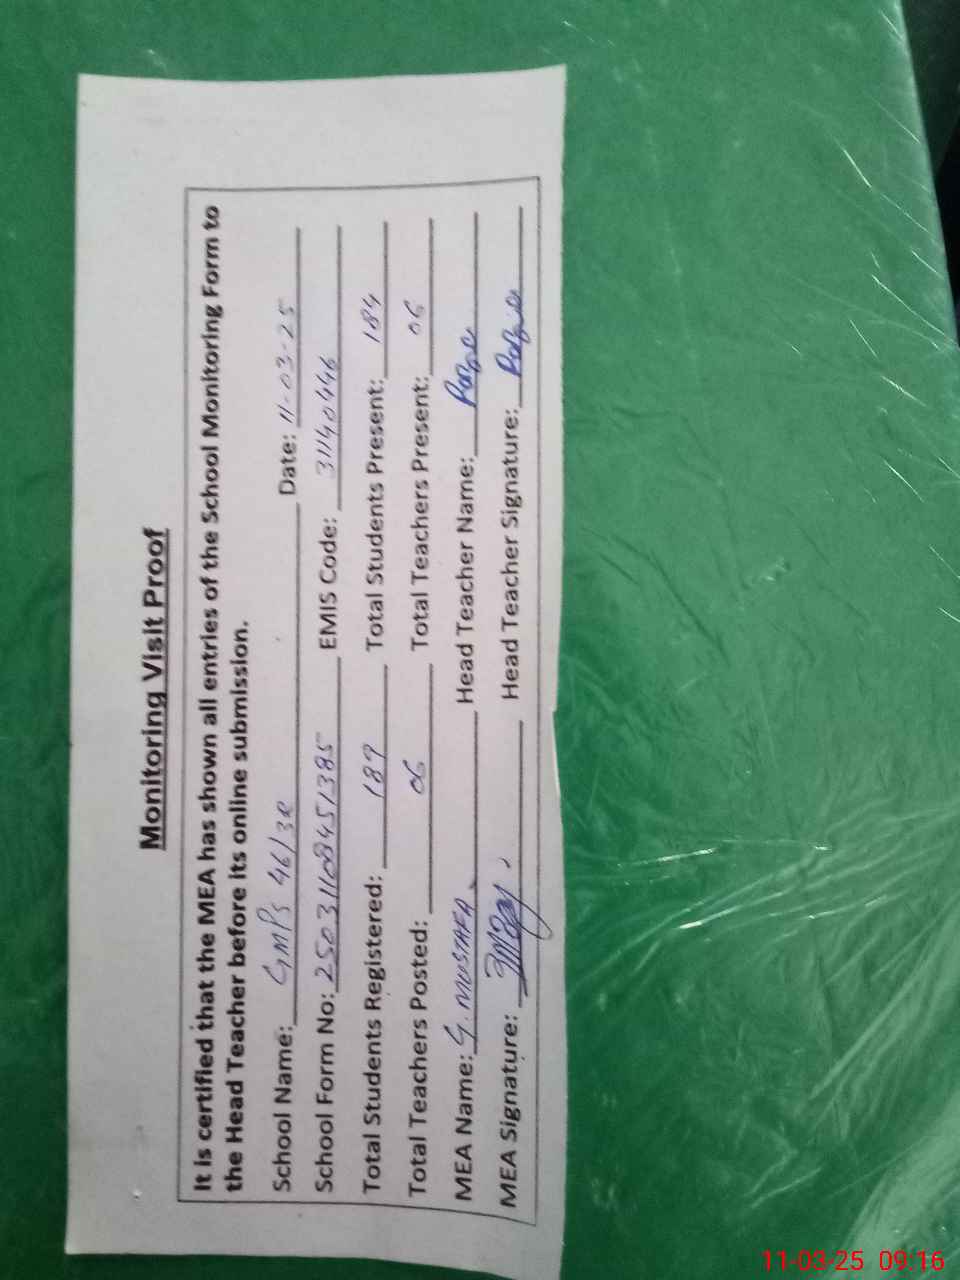 Monitoring Visit Proof
It is certified that the MEA has shown all entries of the School Monitoring Form to
the Head Teacher before its online submission.
School Name: GMPS 46/3R Date: 11-03-25
School Form No: 25031108451385 EMIS Code: 31140446
Total Students Registered: 189 Total Students Present: 184
Total Teachers Posted: 06 Total Teachers Present: 06
MEA Name: G. MUSTAFA Head Teacher Name:
MEA Signature: Head Teacher Signature:
11-03-25 09:16